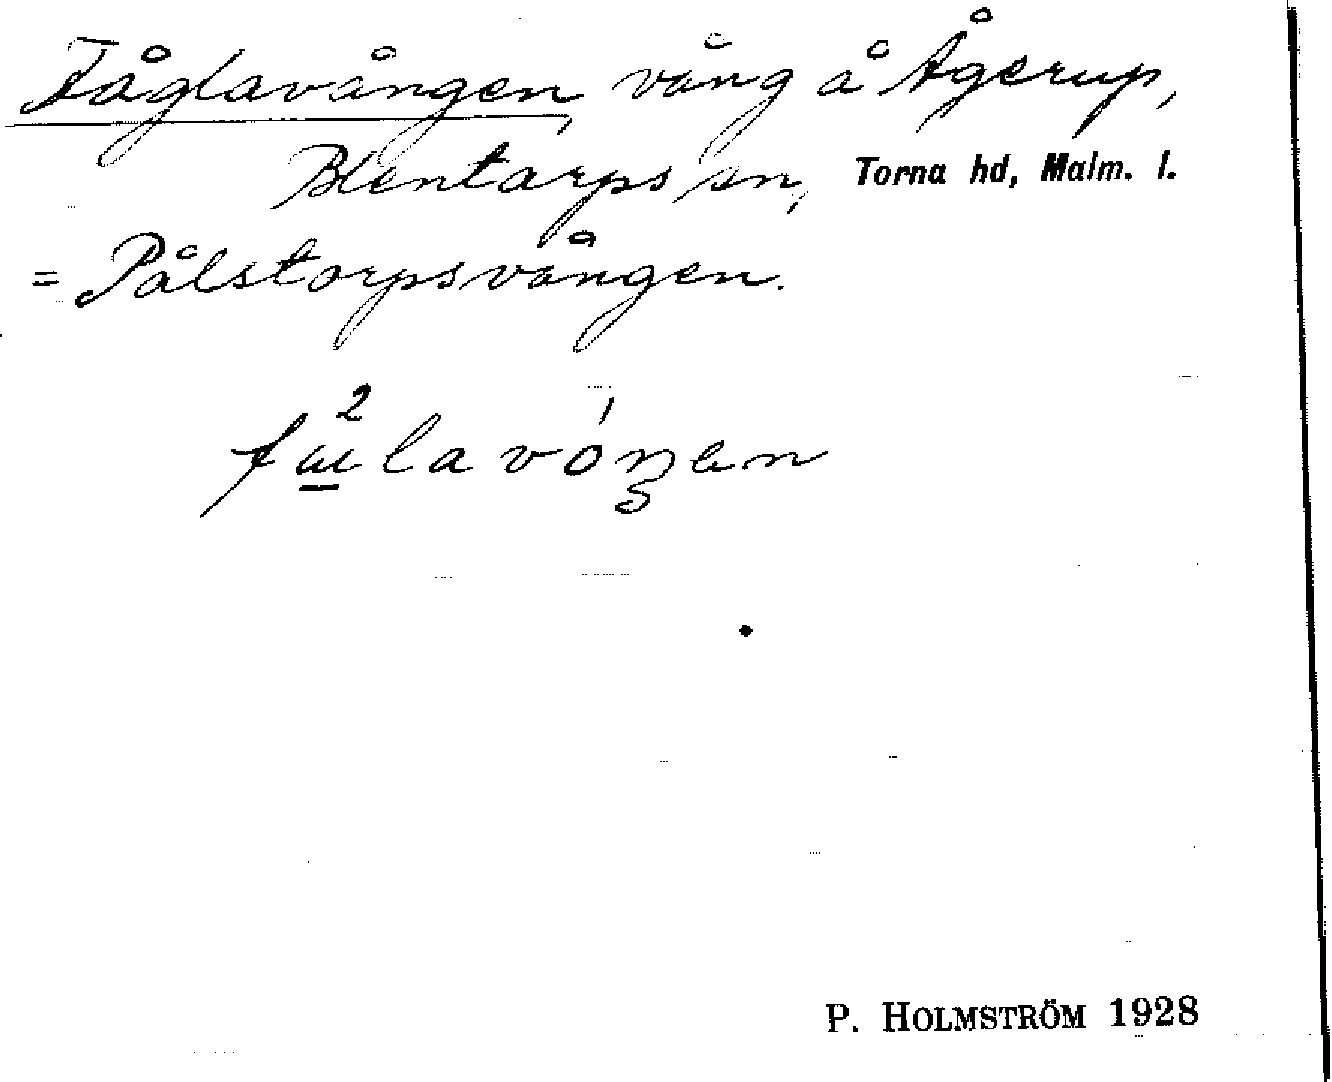 Fåglavången, vång å Ågerup,
Blentarps sn, Torna hd, Malm. l.
= Pålstorpsvången.
fɯ²lavóŋen
P. HOLMSTRÖM 1928